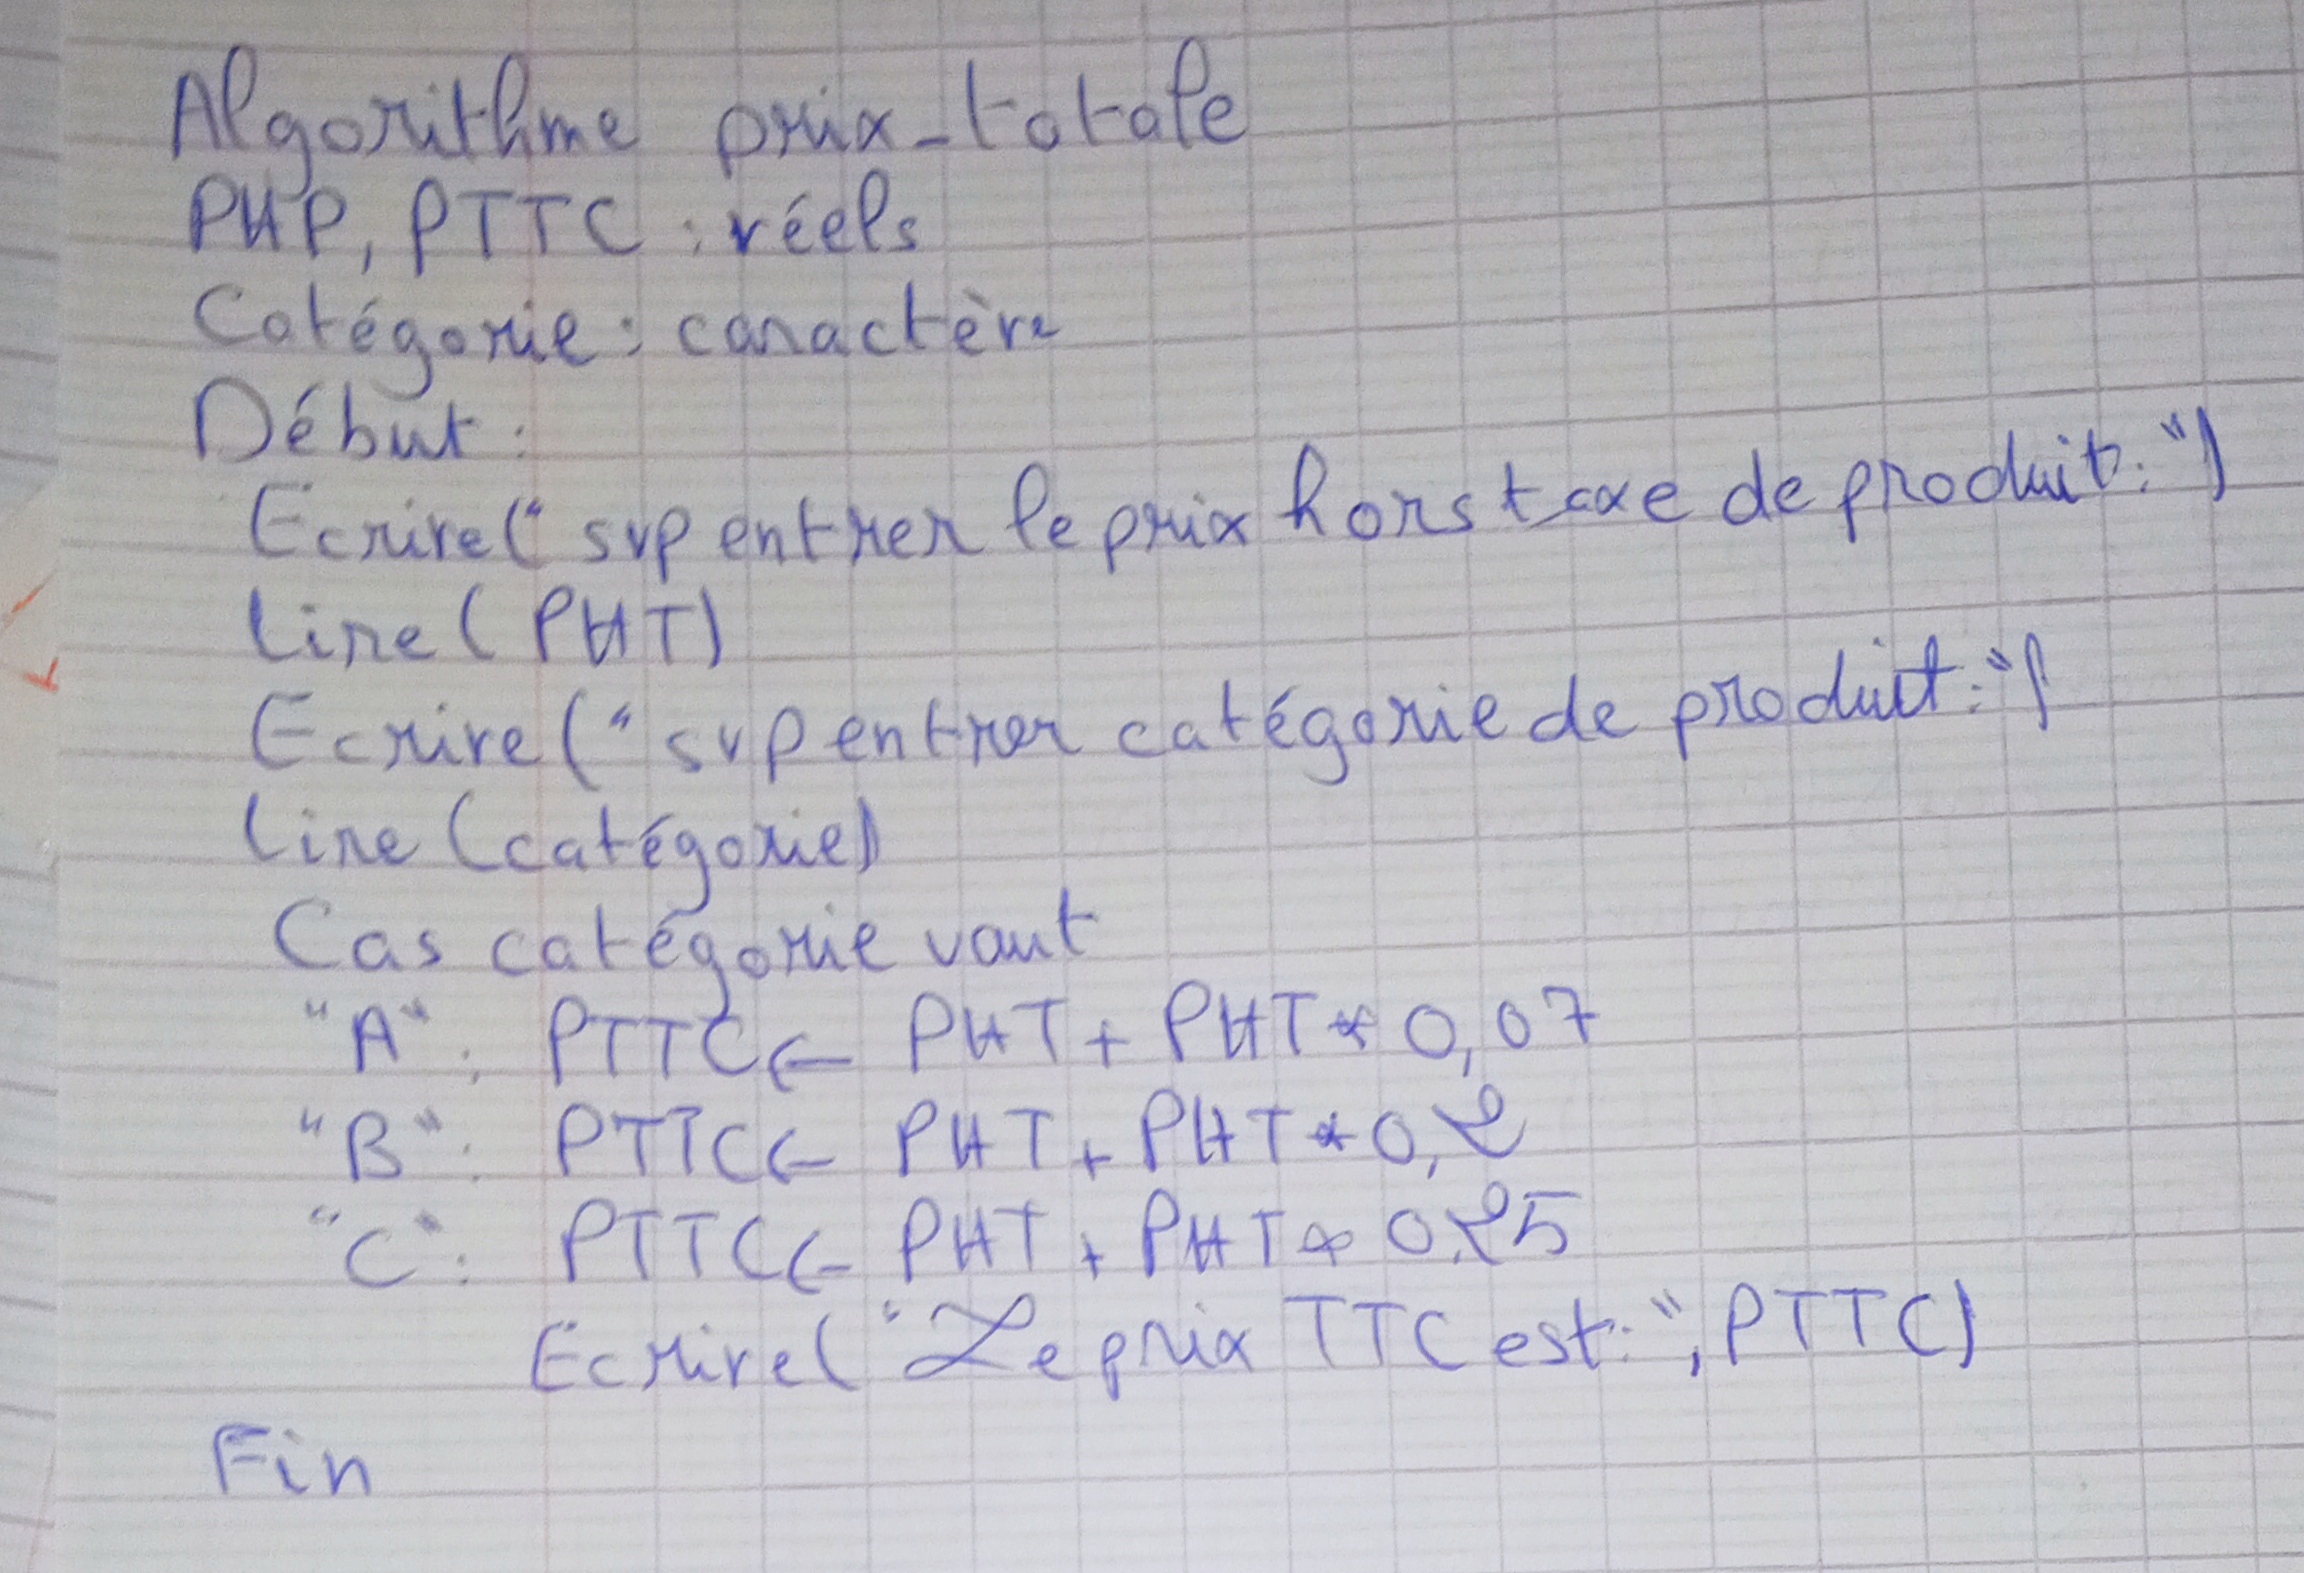 Algorithme prix_totale
PHP, PTTC : réels
Catégorie : caractère
Début :
Ecrire(" svp entrer le prix hors taxe de produit : ")
lire (PHT)
Ecrire (" svp entrer catégorie de produit : ")
lire (catégorie)
Cas catégorie vaut
"A" : PTTC ← PHT + PHT * 0,07
"B" : PTTC ← PHT + PHT * 0,2
"C" : PTTC ← PHT + PHT * 0,25
Ecrire( "Le prix TTC est : ", PTTC)
Fin